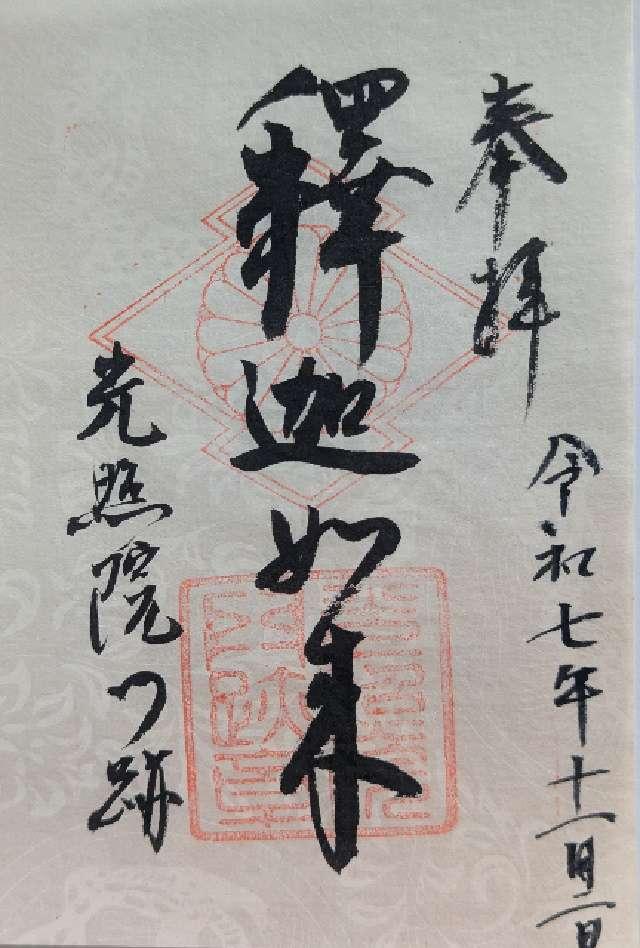 奉拝
令和七年十一月二日
釋迦如来
光照院門跡